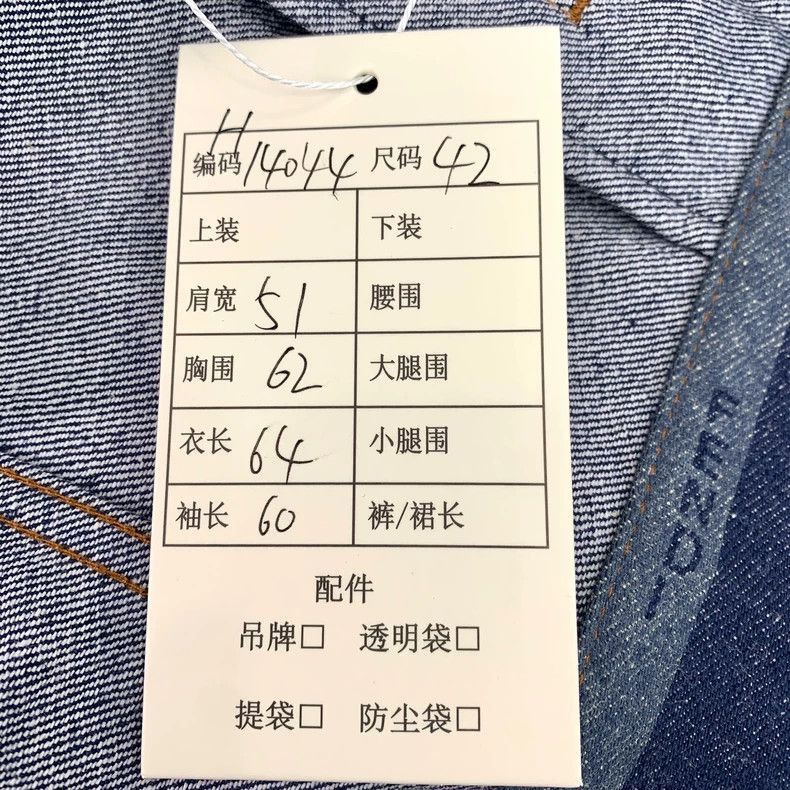 H
编码 14044 尺码 42
上装 下装
肩宽 51 腰围
胸围 62 大腿围
衣长 64 小腿围
袖长 60 裤/裙长
配件
吊牌□ 透明袋□
提袋□ 防尘袋□
FENDI